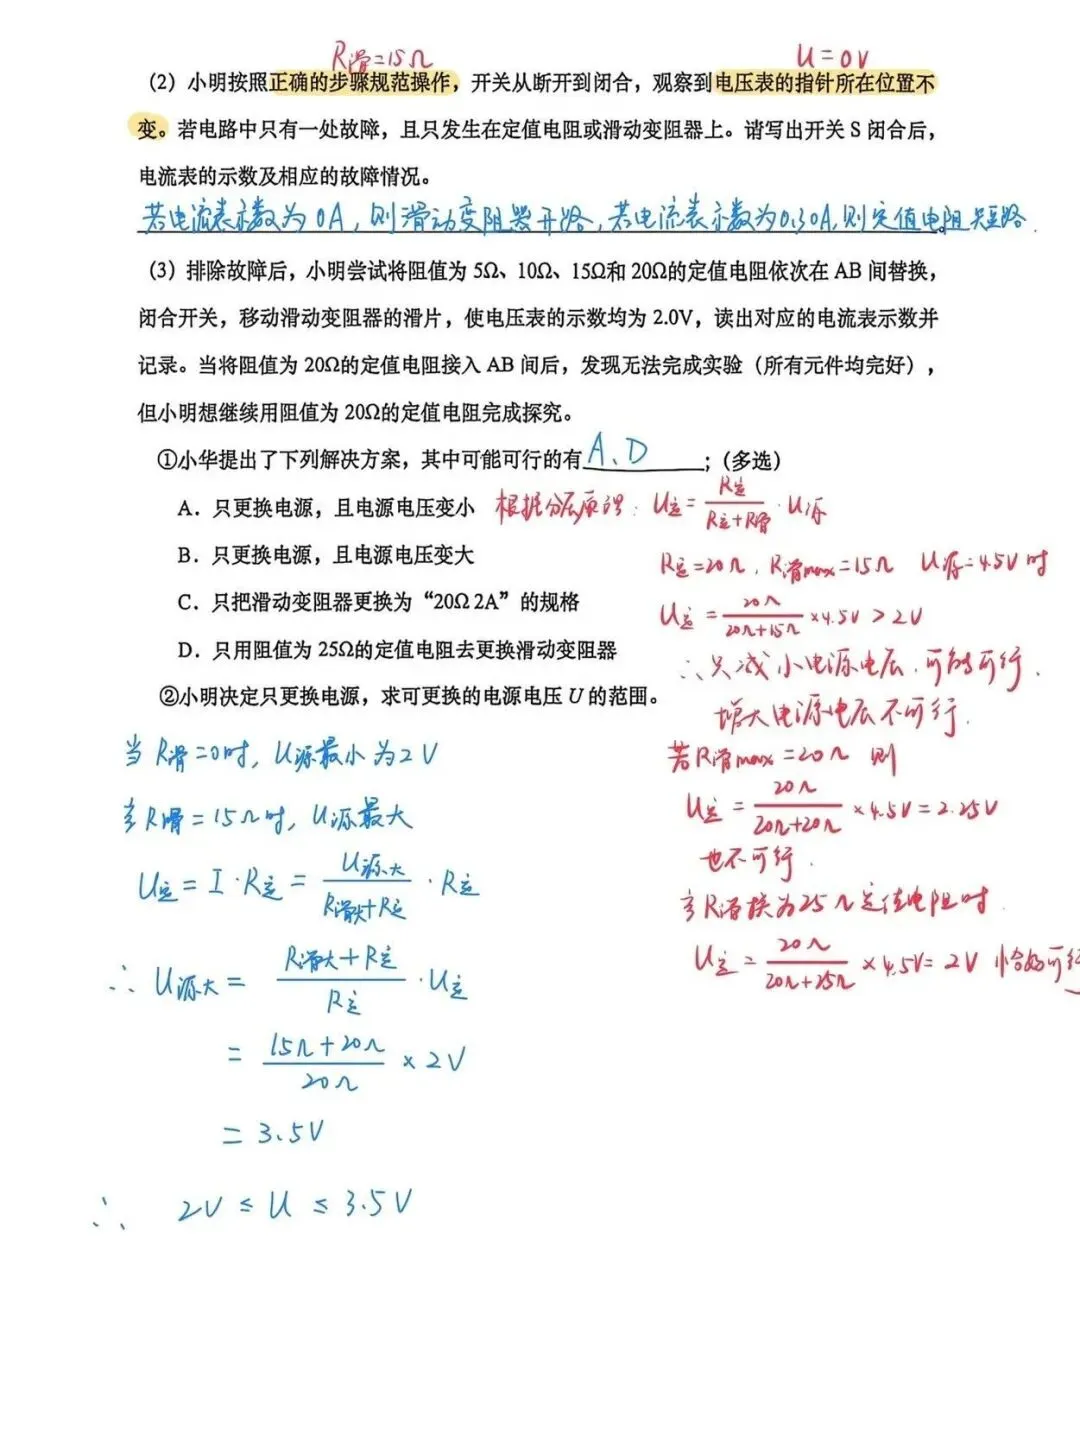 R滑=15Ω
U=0V
（2）小明按照正确的步骤规范操作，开关从断开到闭合，观察到电压表的指针所在位置不
变。若电路中只有一处故障，且只发生在定值电阻或滑动变阻器上。请写出开关 S 闭合后，
电流表的示数及相应的故障情况。
若电流表示数为0A，则滑动变阻器开路，若电流表示数为0.30A，则定值电阻短路.
（3）排除故障后，小明尝试将阻值为 5Ω、10Ω、15Ω和 20Ω的定值电阻依次在 AB 间替换，
闭合开关，移动滑动变阻器的滑片，使电压表的示数均为 2.0V，读出对应的电流表示数并
记录。当将阻值为 20Ω的定值电阻接入 AB 间后，发现无法完成实验（所有元件均完好），
但小明想继续用阻值为 20Ω的定值电阻完成探究。
①小华提出了下列解决方案，其中可能可行的有 A、D ；（多选）
A．只更换电源，且电源电压变小
B．只更换电源，且电源电压变大
C．只把滑动变阻器更换为“20Ω 2A”的规格
D．只用阻值为 25Ω的定值电阻去更换滑动变阻器
②小明决定只更换电源，求可更换的电源电压 U 的范围。
根据分压原理：U定=R定/(R定+R滑)·U源
R定=20Ω，R滑max=15Ω U源=4.5V时
U定=20Ω/(20Ω+15Ω)×4.5V>2V
∴只减小电源电压，可能可行.
增大电源电压不可行.
若R滑max=20Ω 则
U定=20Ω/(20Ω+20Ω)×4.5V=2.25V
也不可行.
当R滑换为25Ω定值电阻时.
U定=20Ω/(20Ω+25Ω)×4.5V=2V 恰好可行
当R滑=0时，U源最小为2V
当R滑=15Ω时，U源最大
U定=I·R定=U源大/(R滑大+R定)·R定
∴U源大=(R滑大+R定)/R定·U定
=(15Ω+20Ω)/20Ω×2V
=3.5V
∴ 2V≤U≤3.5V